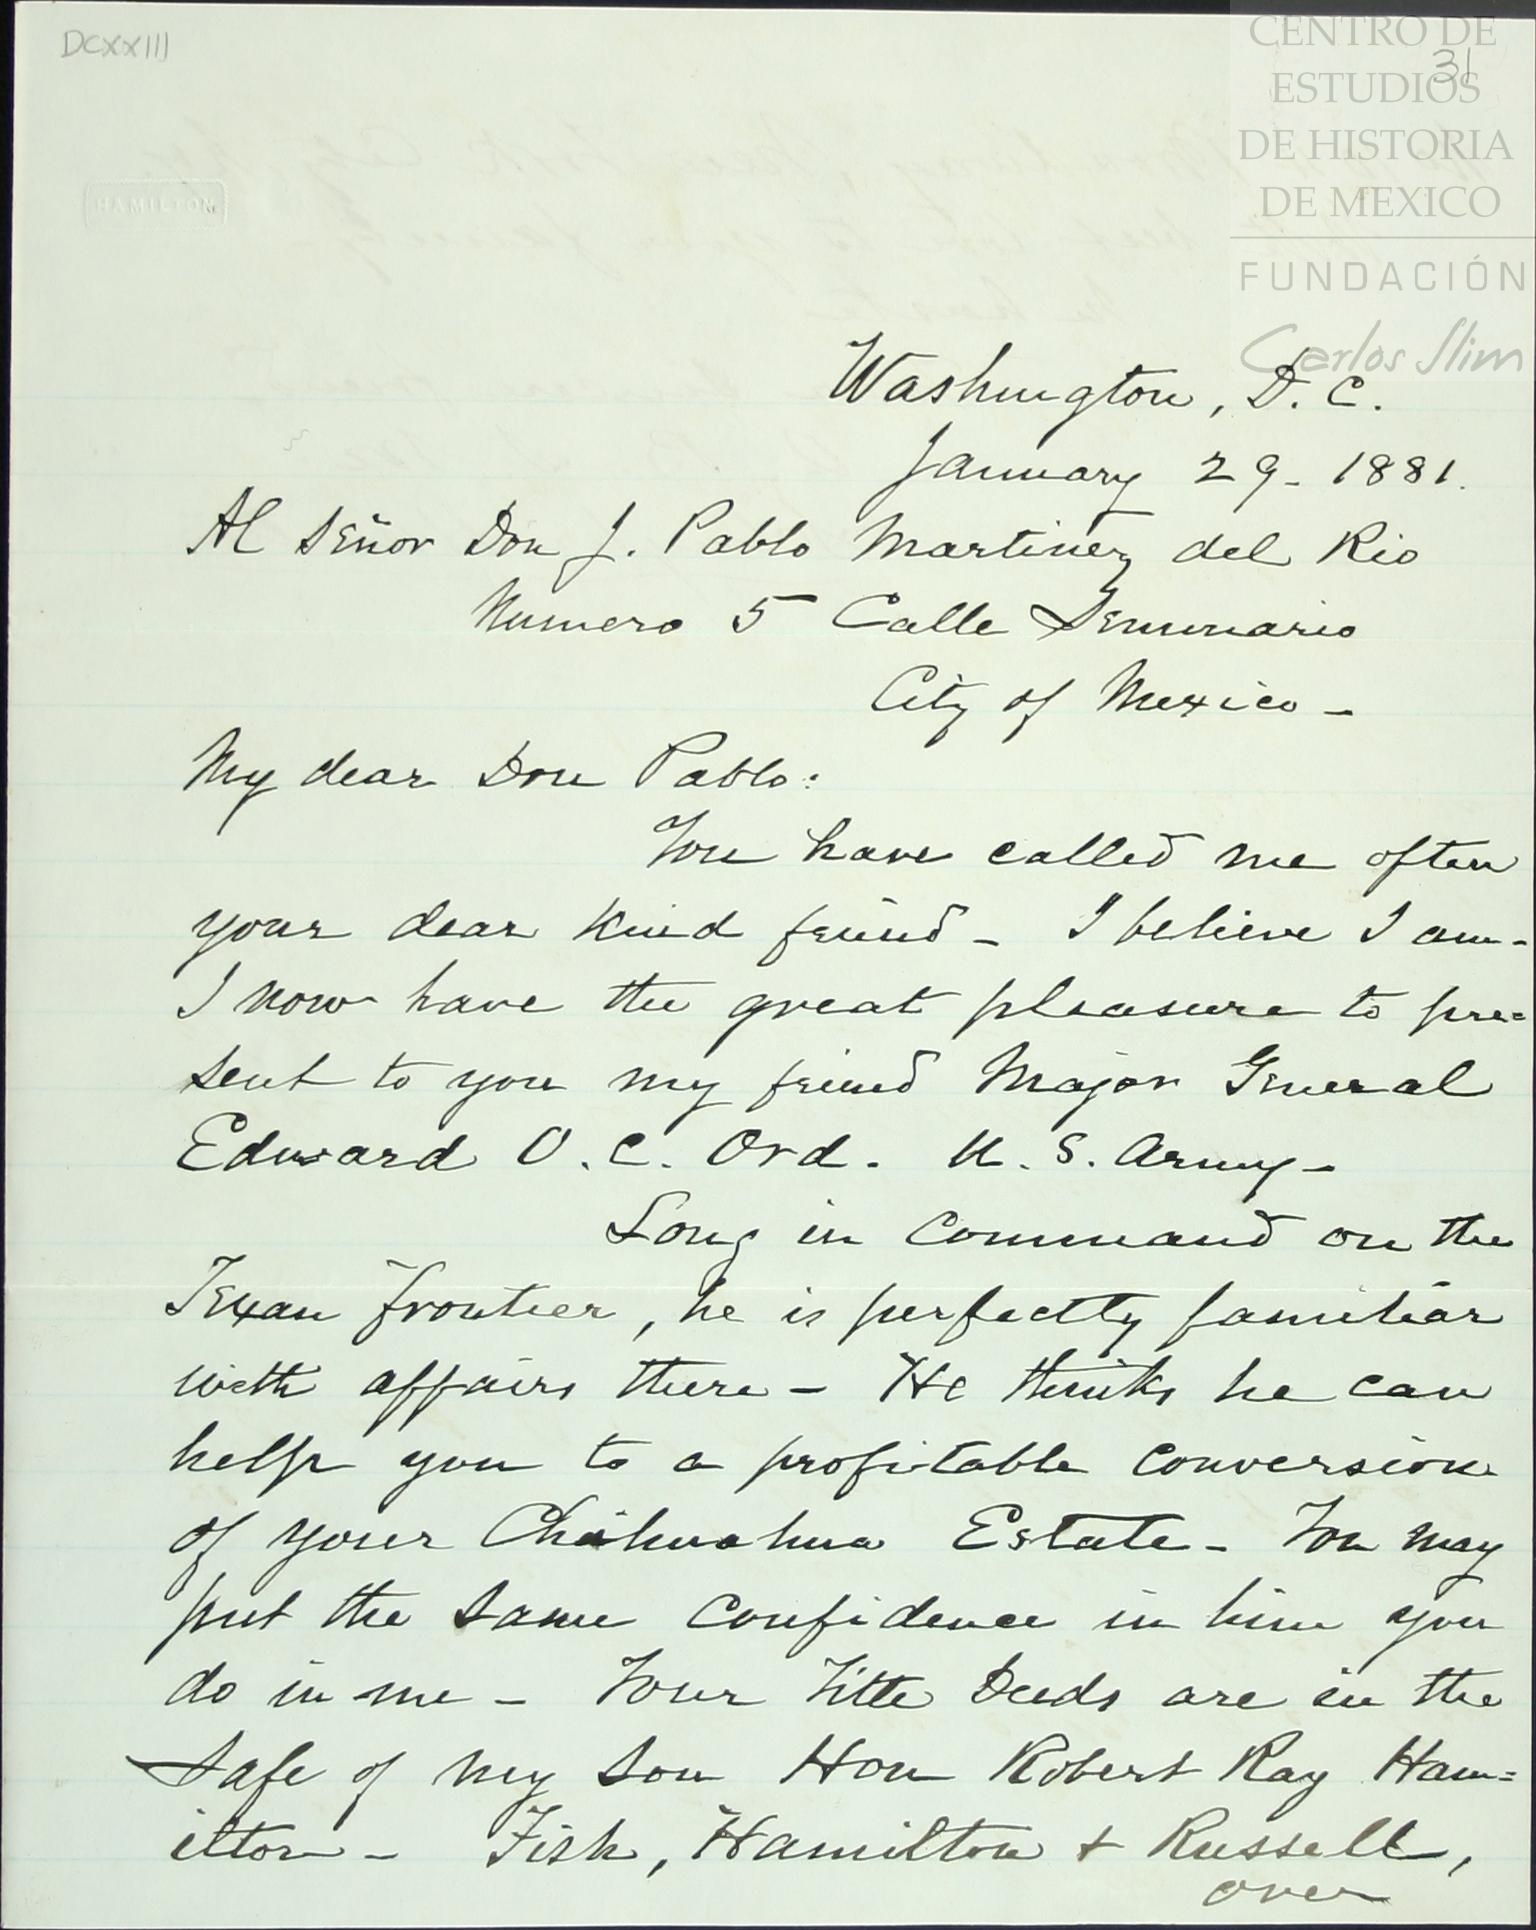 DCXXIII
31
CENTRO DE
ESTUDIOS
DE HISTORIA
DE MEXICO
FUNDACIÓN
Carlos Slim
HAMILTON
Washington, D. C.
January 29 - 1881.
Al Señor Don J. Pablo Martinez del Rio
Numero 5 Calle Seminario
City of Mexico -
My dear Don Pablo:
You have called me often
your dear kind friend - I believe I am -
I now have the great pleasure to pre=
sent to you my friend Major General
Edward O. C. Ord. U. S. Army -
Long in command on the
Texan frontier, he is perfectly familiar
with affairs there - He thinks he can
help you to a profitable conversion
of your Chihuahua Estate - You may
put the same confidence in him you
do in me - Your Title Deeds are in the
safe of my son Hon Robert Ray Ham=
ilton - Fish, Hamilton & Russell,
over